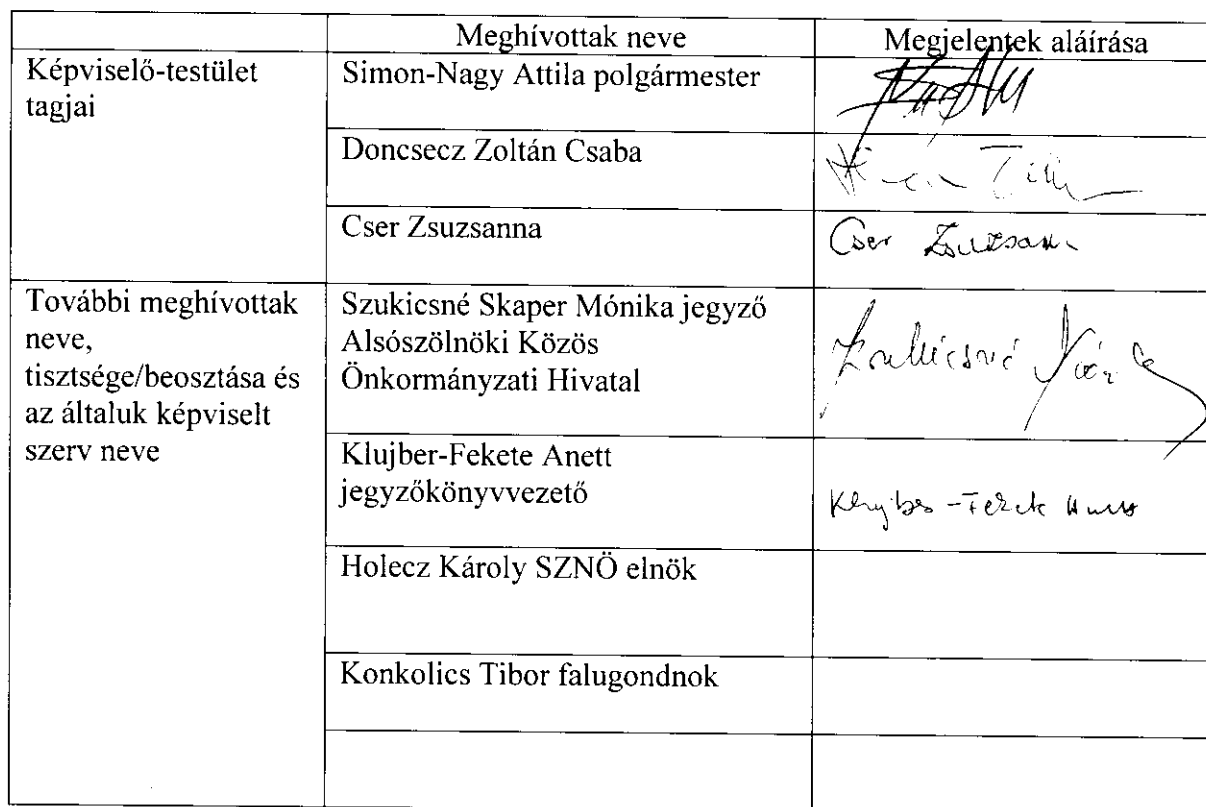 Meghívottak neve
Megjelentek aláírása
Képviselő-testület
tagjai
Simon-Nagy Attila polgármester
Doncsecz Zoltán Csaba
Cser Zsuzsanna
Cser Zsuzsan
További meghívottak
neve,
tisztsége/beosztása és
az általuk képviselt
szerv neve
Szukicsné Skaper Mónika jegyző
Alsószölnöki Közös
Önkormányzati Hivatal
Szukicsné
Klujber-Fekete Anett
jegyzőkönyvvezető
Holecz Károly SZNÖ elnök
Konkolics Tibor falugondnok